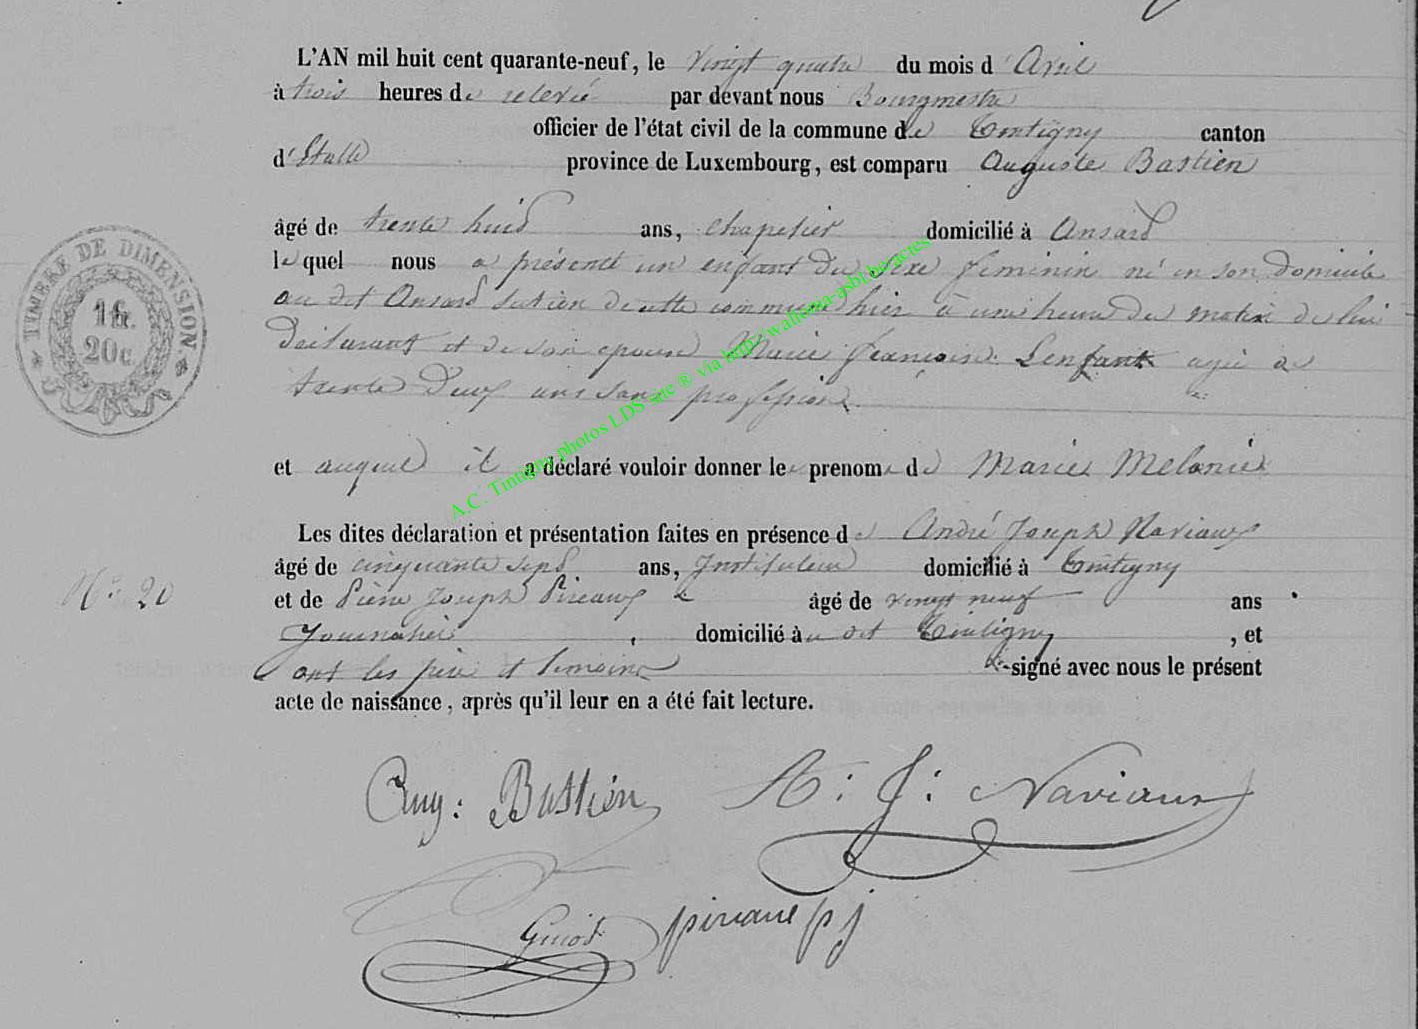 L'AN mil huit cent quarante-neuf, le vingt quatre du mois d'Avril
à trois heures de relevée par devant nous Bourgmestre
officier de l'état civil de la commune de Tintigny canton
d'Etalle province de Luxembourg, est comparu Auguste Bastien
âgé de trente huit ans, chapelier domicilié à Ansard
lequel nous a présenté un enfant du sexe féminin né en son domicile
au dit Ansard section de cette commune hier à une heure du matin de lui
déclarant et de son épouse Marie Françoise Lenfant agée de
trente deux ans sans profession
et auquel il a déclaré vouloir donner le prenom de Marie Melanie
Les dites déclaration et présentation faites en présence de André Joseph Naviaux
âgé de cinquante sept ans, Instituteur domicilié à Tintigny
et de Pierre Joseph Pireaux âgé de vingt neuf ans
Journalier, domicilié au dit Tintigny, et
ont les père et temoins signé avec nous le présent
acte de naissance, après qu'il leur en a été fait lecture.
TIMBRE DE DIMENSION.
1 fr.
20 c.
N° 20
Aug: Bastien A: J: Naviaux
Guiot
A.C. Tintigny photos LDS site ® via http://wallonia-asbl.be/actes